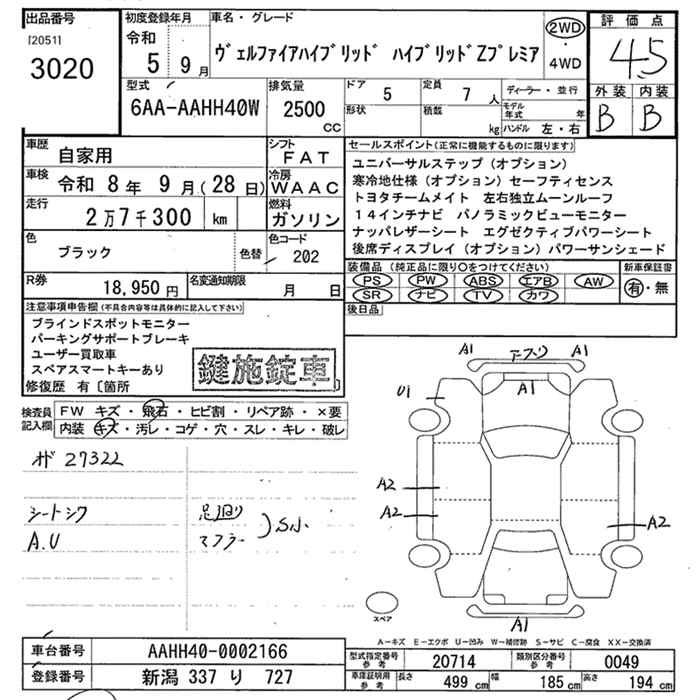 出品番号
[2051]
3020
初度登録年月
令和
5年 9月
車名・グレード
ヴェルファイアハイブリッド ハイブリッドZプレミア
2WD
・
4WD
評価点
4.5
外装 内装
B B
型式
6AA-AAHH40W
排気量
2500
CC
ドア 5
形状
定員 7 人
積数 kg
ディーラー・並行
モデル年式 年
ハンドル 左・右
車歴
自家用
シフト
FAT
車検
令和 8年 9月(28日)
冷房
WAAC
走行
2万7千300 km
燃料
ガソリン
色
ブラック
色替
色コード
202
R券
18,950円
名変通知期限
月 日
セールスポイント(正常に機能するものに限ります)
ユニバーサルステップ(オプション)
寒冷地仕様(オプション)セーフティセンス
トヨタチームメイト 左右独立ムーンルーフ
14インチナビ パノラミックビューモニター
ナッパレザーシート エグゼクティブパワーシート
後席ディスプレイ(オプション)パワーサンシェード
装備品(純正品に限り○をつけてください)
PS PW ABS エアB AW
SR ナビ TV カワ
新車保証書
有・無
後日品
注意事項申告欄(不具合内容等は具体的に記入して下さい)
ブラインドスポットモニター
パーキングサポートブレーキ
ユーザー買取車
スペアスマートキーあり
修復歴 有〔箇所
鍵施錠車
検査員記入欄
FW キズ・飛石・ヒビ割・リペア跡・×要
内装 キズ・汚レ・コゲ・穴・スレ・キレ・破レ
27322
シートシワ
A.U
足廻り
マフラー
S小
A1
A1
A1
U1
A2
A2
A2
A1
スペア
A-キズ E-エクボ U-凹み W-補修跡 S-サビ C-腐食 XX-交換済
車台番号
AAHH40-0002166
登録番号
新潟 337 り 727
型式指定番号
参考
20714
類別区分番号
参考
0049
車庫証明用
参考
長さ 499 cm
幅 185 cm
高さ 194 cm